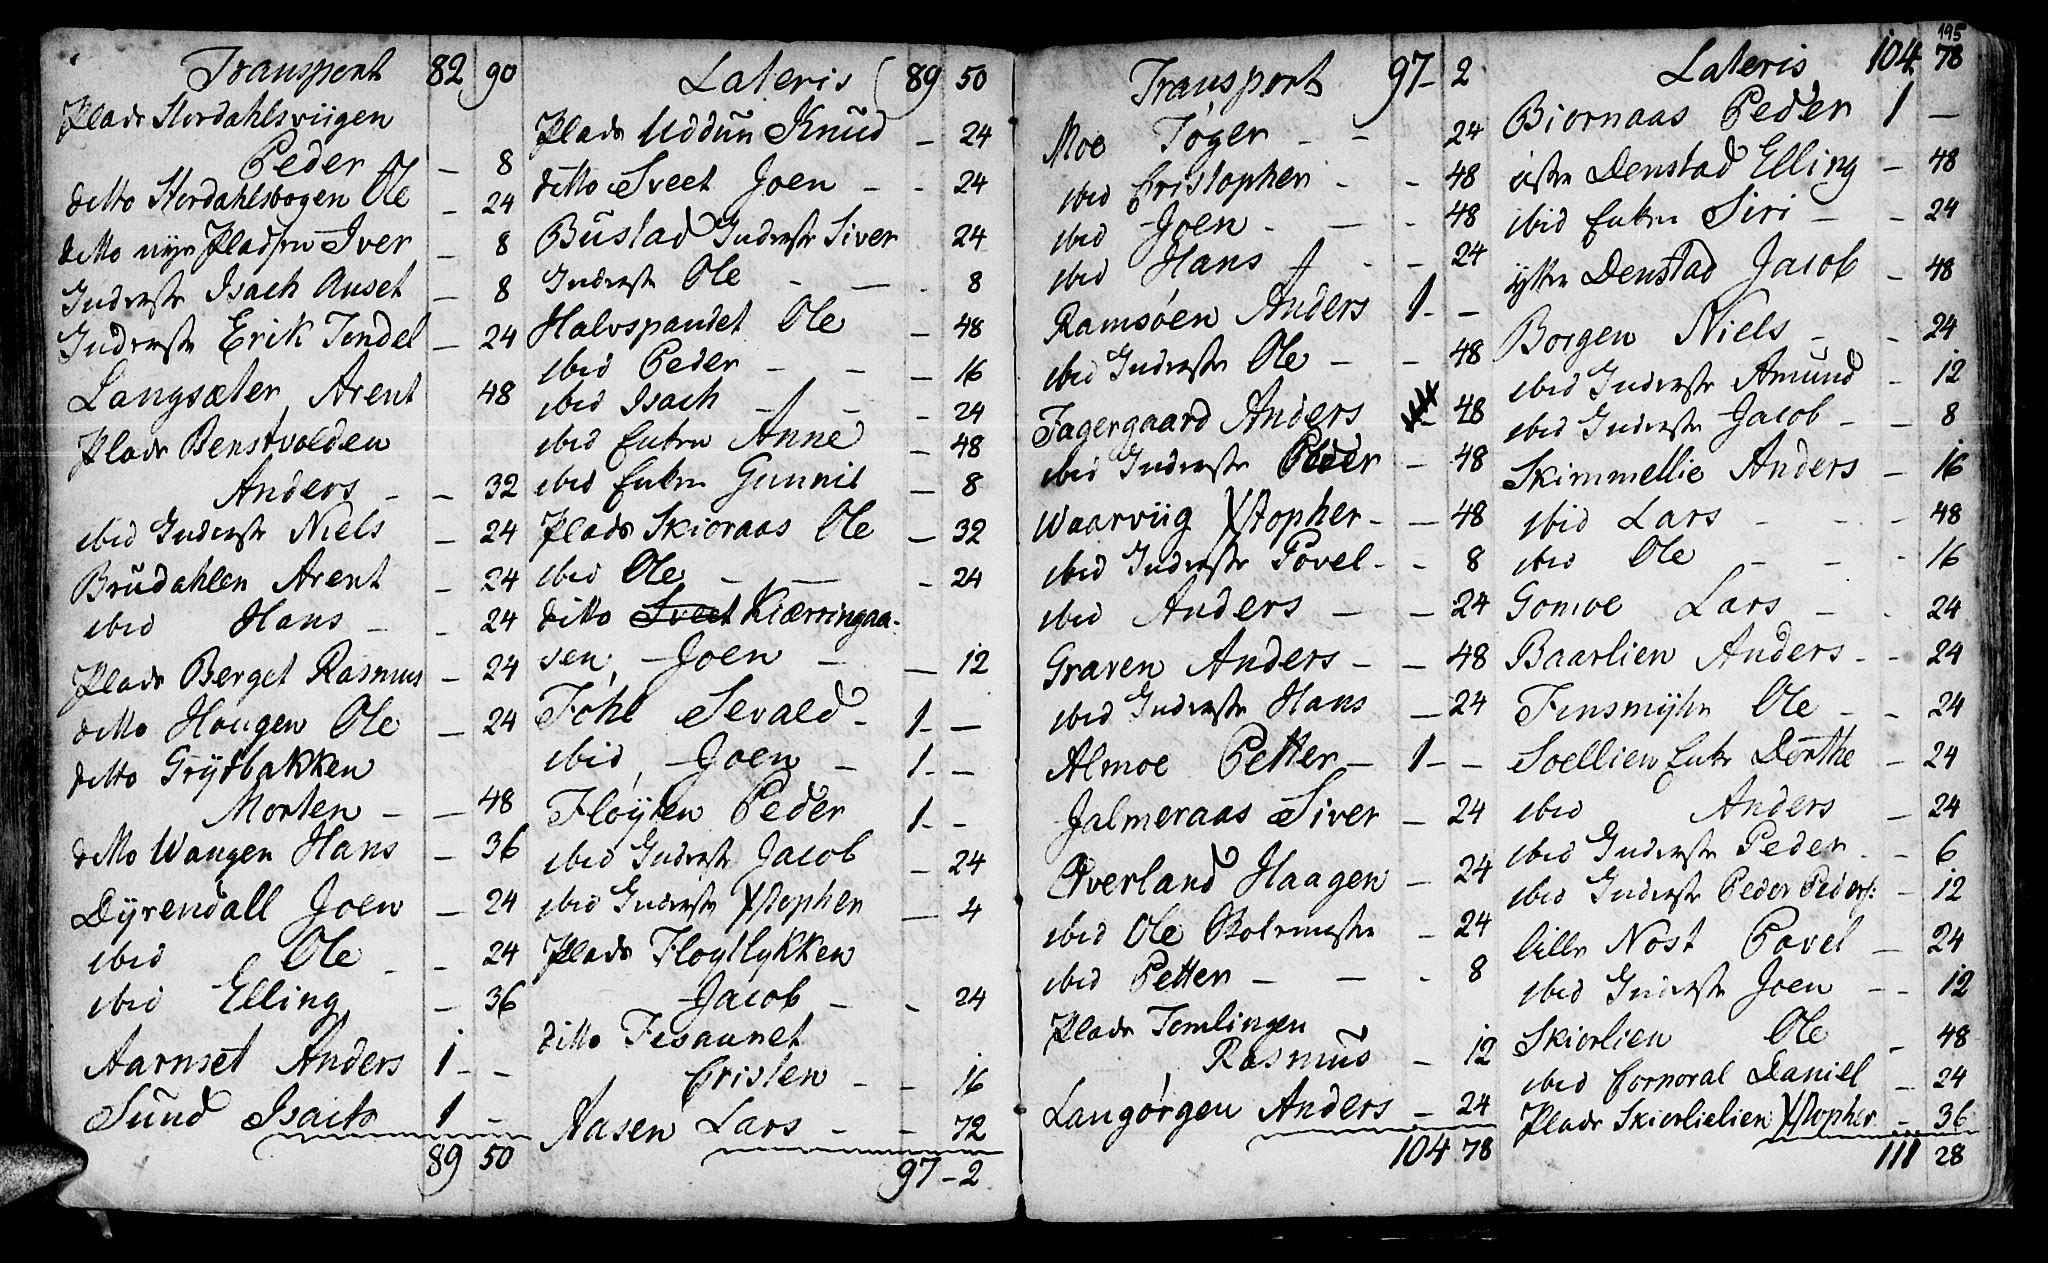 Transport 82 90
Plads Stordahlsviigen
Peder – 8
ditto Stordahlsbogen Ole – 24
ditto nye Pladsen Iver – 8
Inderste Isach Auset – 8
Inderste Erik Tendel – 24
Langsæter Arent 48
Plads Benstvolden
Anders – – 32
ibid Inderste Niels 24
Brudahlen Arent – 24
ibid Hans – – 24
Plads Berget Rasmus – 24
ditto Haugen Ole – 24
ditto Grytbakken
Morten – – 48
ditto Wangen Hans – 36
Dyrendall Joen – 24
ibid Ole – – 24
ibid Elling – 36
Aarnset Anders 1 – –
Sund Isach 1 –
89 50
Lateris 89 50
Plads Uddun Knud – 24
ditto Sveet Joen – – 24
Bustad Inderste Siver 24
Inderste Ole – – – 8
Halvspandet Ole – 48
ibid Peder – – – 16
ibid Isach – – – 24
ibid Enken Anne – 48
ibid Enken Gunnil – 8
Plads Skioraas Ole – 32
ibid Ole – – – 24
ditto Sveet Kiærringaa-
sen Joen – – 12
Fohl Sevald – 1 – –
ibid Joen – 1 – –
Fløyten Peder 1 – –
ibid Inderste Jacob – 24
ibid Inderste Xstopher – 4
Plads Floytlykken
Jacob – – 24
ditto Fesaunet
Cristen – – 16
Aasen Lars – – 72
97 – 2
Transport 97 – 2
Moe Tøger – – 24
ibid Cristopher – – 48
ibid Joen – – – 48
ibid Hans – – – 24
Ramsøen Anders 1 – –
ibid Inderste Ole – – 48
Fagergaard Anders – 48
ibid Inderste Peder – 48
Waarviig Xstopher – – 48
ibid Inderste Povel – – 8
ibid Anders – – 24
Graven Anders – – 48
ibid Inderste Hans – 24
Almoe Petter – 1 – –
Jalmeraas Siver – 24
Overland Haagen – 24
ibid Ole – 24
ibid Petter – – – 8
Plads Tomlingen
Rasmus – 12
Langørgen Anders – 24
104 78
195
Lateris 104 78
Biornaas Peder 1 –
østre Denstad Elling – 48
ibid Enken Siri – – 24
ytre Denstad Jacob – 48
Borgen Niels – – 24
ibid Inderste Amund – 12
ibid Inderste Jacob – – 8
Skimmellie Anders – 16
ibid Lars – – – 48
ibid Ole – – – 16
Gomoe Lars – – 24
Baarlien Anders – – 24
Finsmyhr Ole – – 24
Soellien Enke Dorthe – 24
ibid Anders – 24
ibid Inderste Peder – – 6
ibid Inderste Peder Peders: – 12
lille Nost Povel – 24
ibid Inderste Joen – – 12
Skiorlien Ole – 48
ibid Corporal Daniel – 24
Plads Skiorlielien Xstopher – 36
111 28